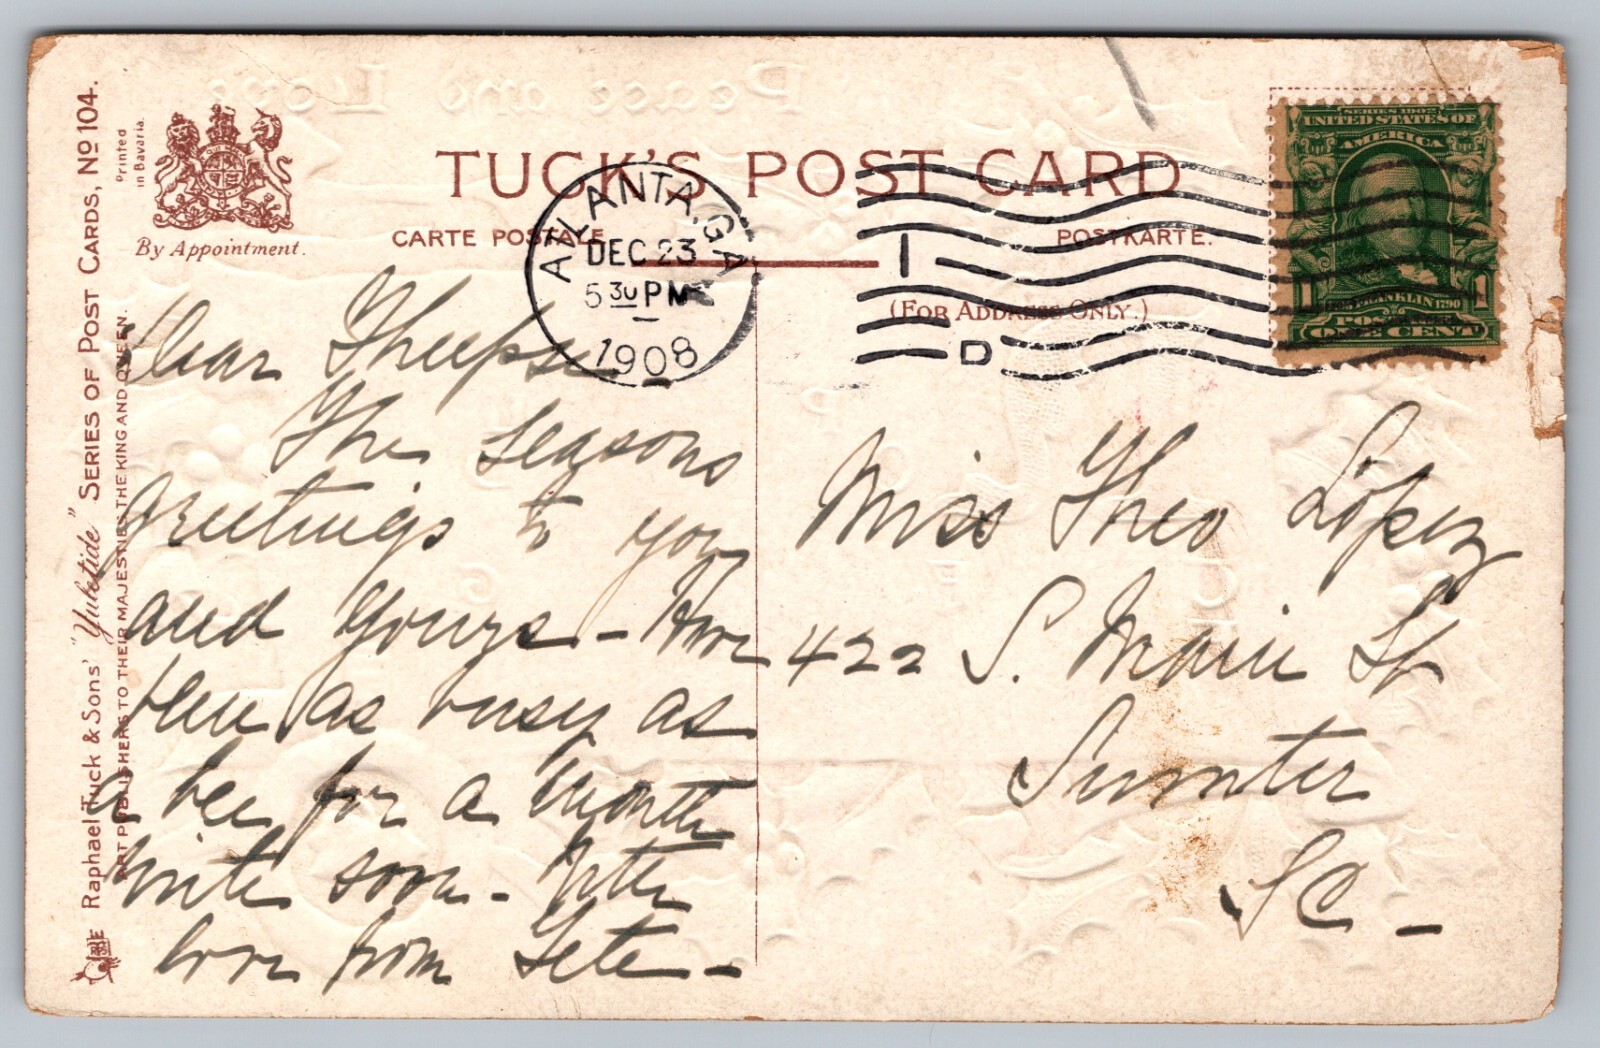 Raphael Tuck & Sons' "Yuletide" Series of Post Cards, No 104.
Art Publishers to Their Majesties the King and Queen.
Printed
in Bavaria.
By Appointment.
TUCK'S POST CARD
CARTE POSTALE
POSTKARTE.
(For Address Only.)
ATLANTA, GA
DEC 23
5 30 PM
1908
1
D
SERIES 1902
UNITED STATES OF
AMERICA
1 FRANKLIN 1790 1
ONE CENT
Dear
The Seasons
greetings to you
and yours - Have
been as busy as
a bee for a month
Write soon - With
love from
Miss Theo Lopez
422 S. Main St
Sumter
SC -